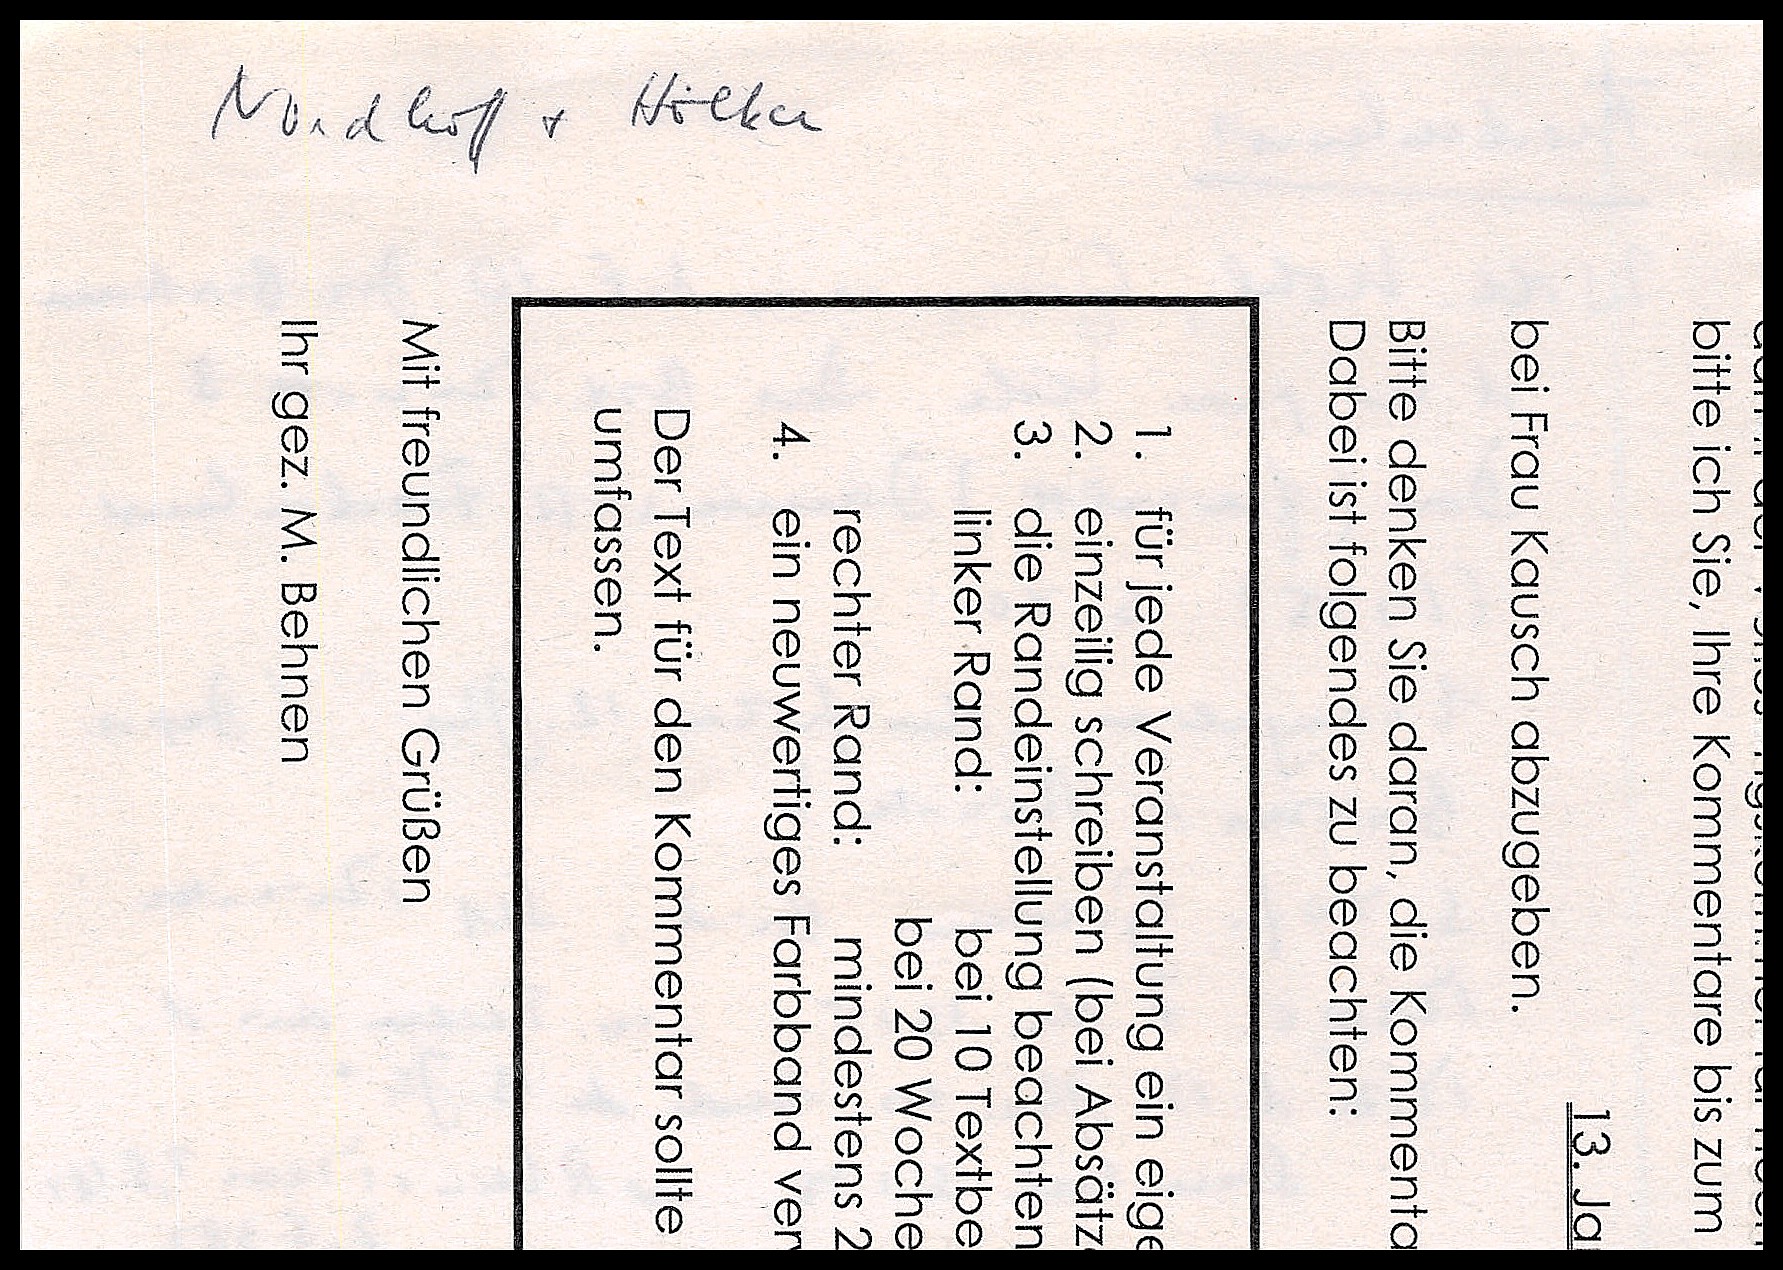 Nordhoff + Hölker
bitte ich Sie, Ihre Kommentare bis zum
13. Ja
bei Frau Kausch abzugeben.
Bitte denken Sie daran, die Kommenta
Dabei ist folgendes zu beachten:
1. für jede Veranstaltung ein eige
2. einzeilig schreiben (bei Absätz
3. die Randeinstellung beachten
linker Rand: bei 10 Textbe
bei 20 Woche
rechter Rand: mindestens 2
4. ein neuwertiges Farbband ver
Der Text für den Kommentar sollte
umfassen.
Mit freundlichen Grüßen
Ihr gez. M. Behnen